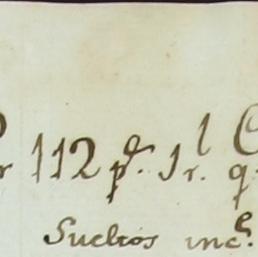 r 112 ps. 1 rl. q
Sueltos inc